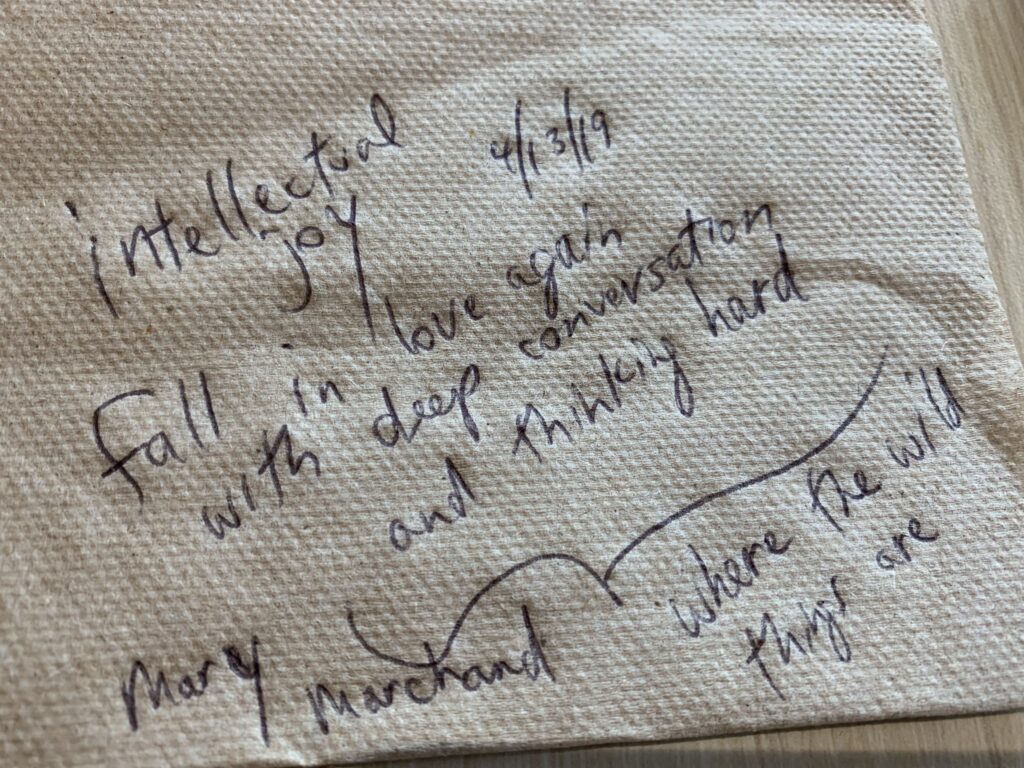 intellectual
joy
4/13/19
Fall in love again
with deep conversation
and thinking hard
Mary Marchand
where the wild
things are